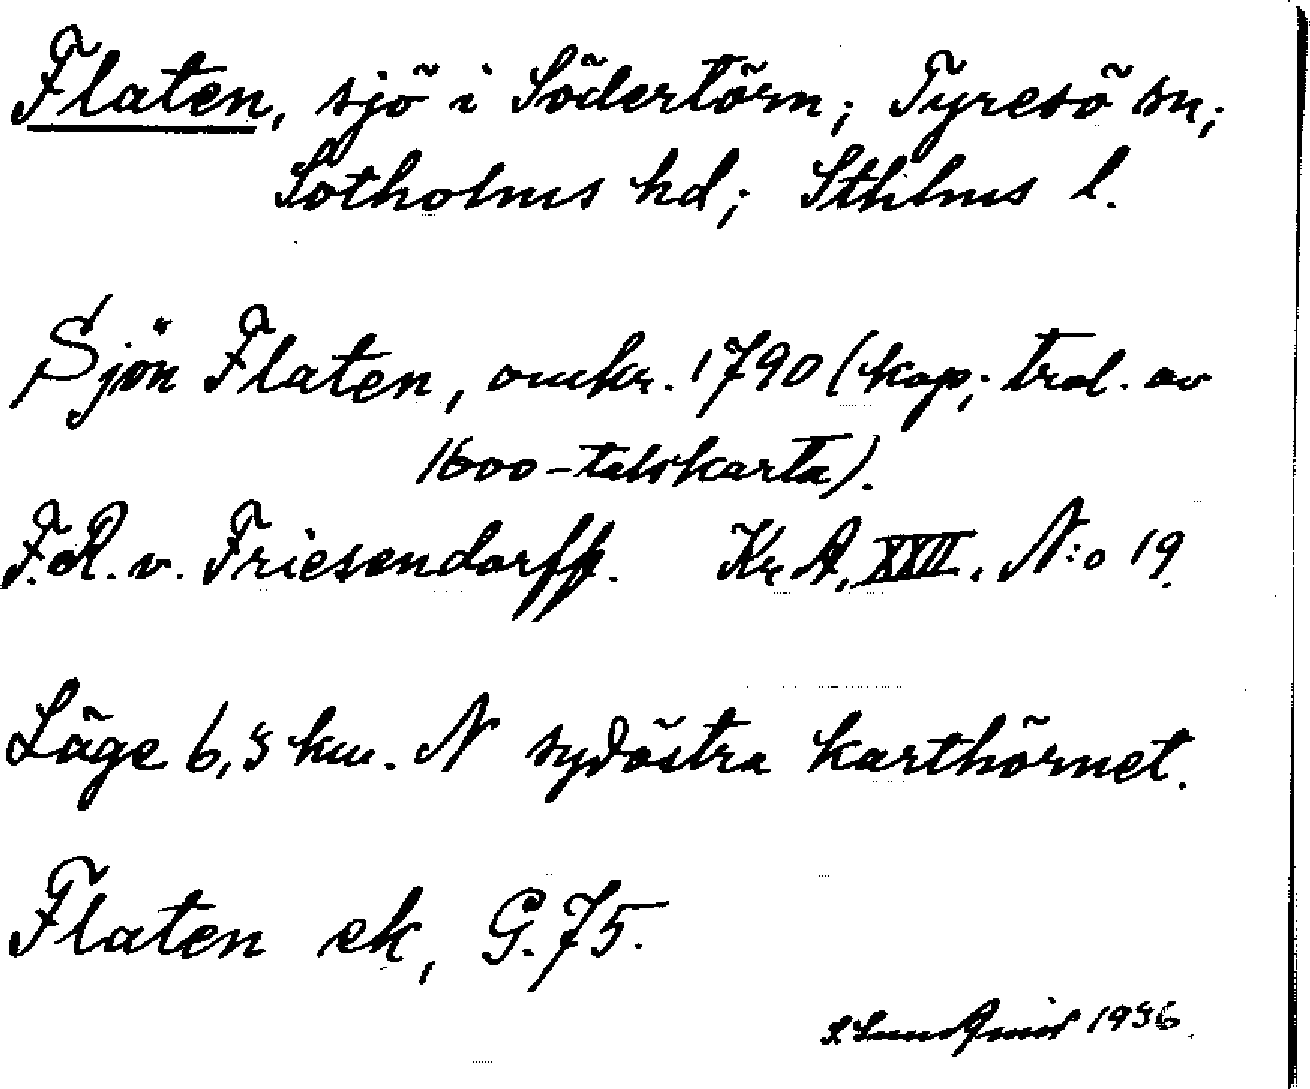 Flaten, sjö i Södertörn; Tyresö sn;
Sotholms hd; Sthlms l.
Sjön Flaten, omkr. 1790 (kop; trol. av
1600-talskarta).
F.R. v. Friesendorff. Kr. A. XXII. N:o 19.
Läge 6,3 km. N sydöstra karthörnet.
Flaten ek, G.75.
S. Lundqvist 1936.